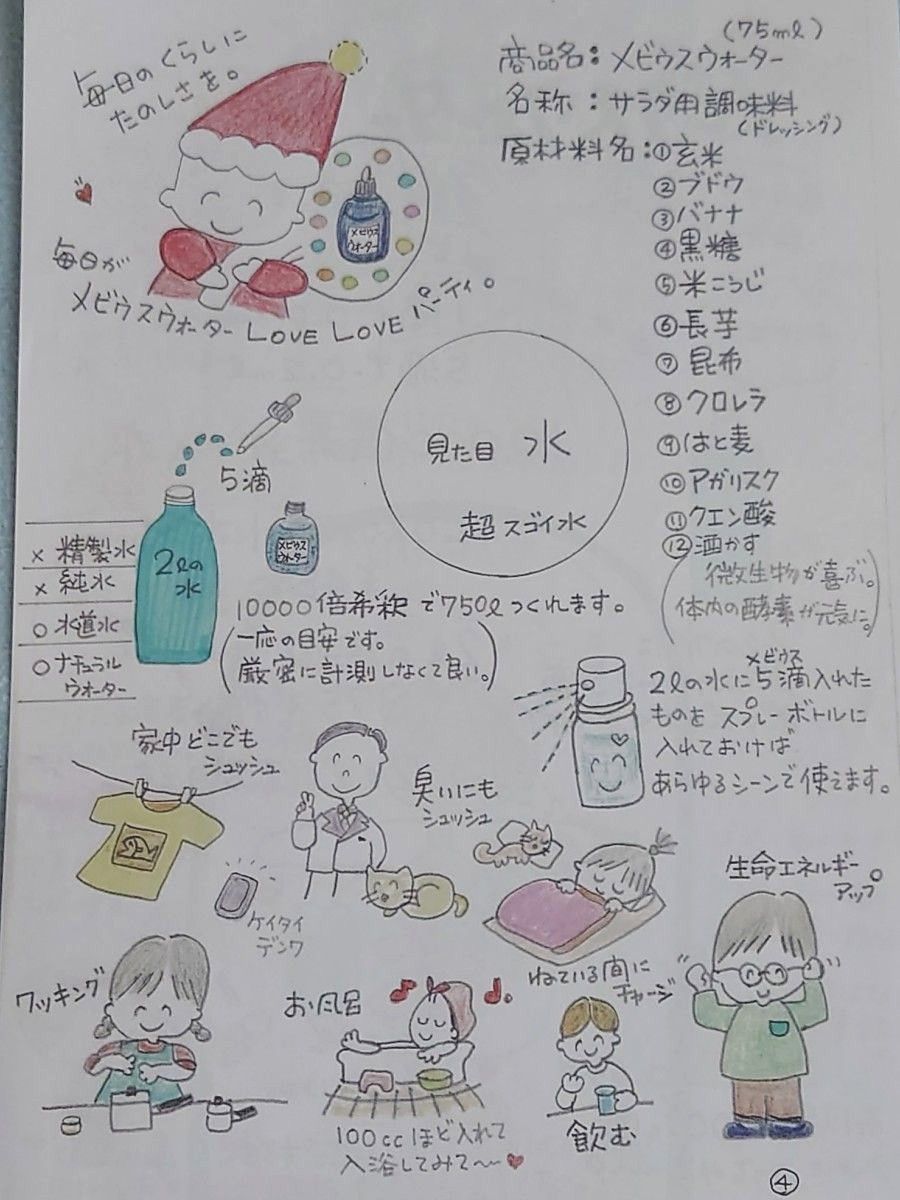 毎日のくらしに
たのしさを。
毎日が
メビウスウォーター LOVE LOVE パーティ。
メビウス
ウォーター
(75ml)
商品名：メビウスウォーター
名称：サラダ用調味料
(ドレッシング)
原材料名：①玄米
②ブドウ
③バナナ
④黒糖
⑤米こうじ
⑥長芋
⑦昆布
⑧クロレラ
⑨はと麦
⑩アガリスク
⑪クエン酸
⑫酒かす
(微生物が喜ぶ。
体内の酵素が元気に。)
見た目 水
超スゴイ水
5滴
2ℓの
水
メビウス
ウォーター
× 精製水
× 純水
○ 水道水
○ ナチュラル
ウォーター
10000倍希釈で750ℓつくれます。
(一応の目安です。
厳密に計測しなくて良い。)
メビウス
2ℓの水に5滴入れた
ものをスプレーボトルに
入れておけば
あらゆるシーンで使えます。
家中どこでも
シュッシュ
臭いにも
シュッシュ
ケイタイ
デンワ
ねている間に
チャージ
生命エネルギー
アップ。
クッキング
お風呂
100ccほど入れて
入浴してみて〜♥
飲む
④